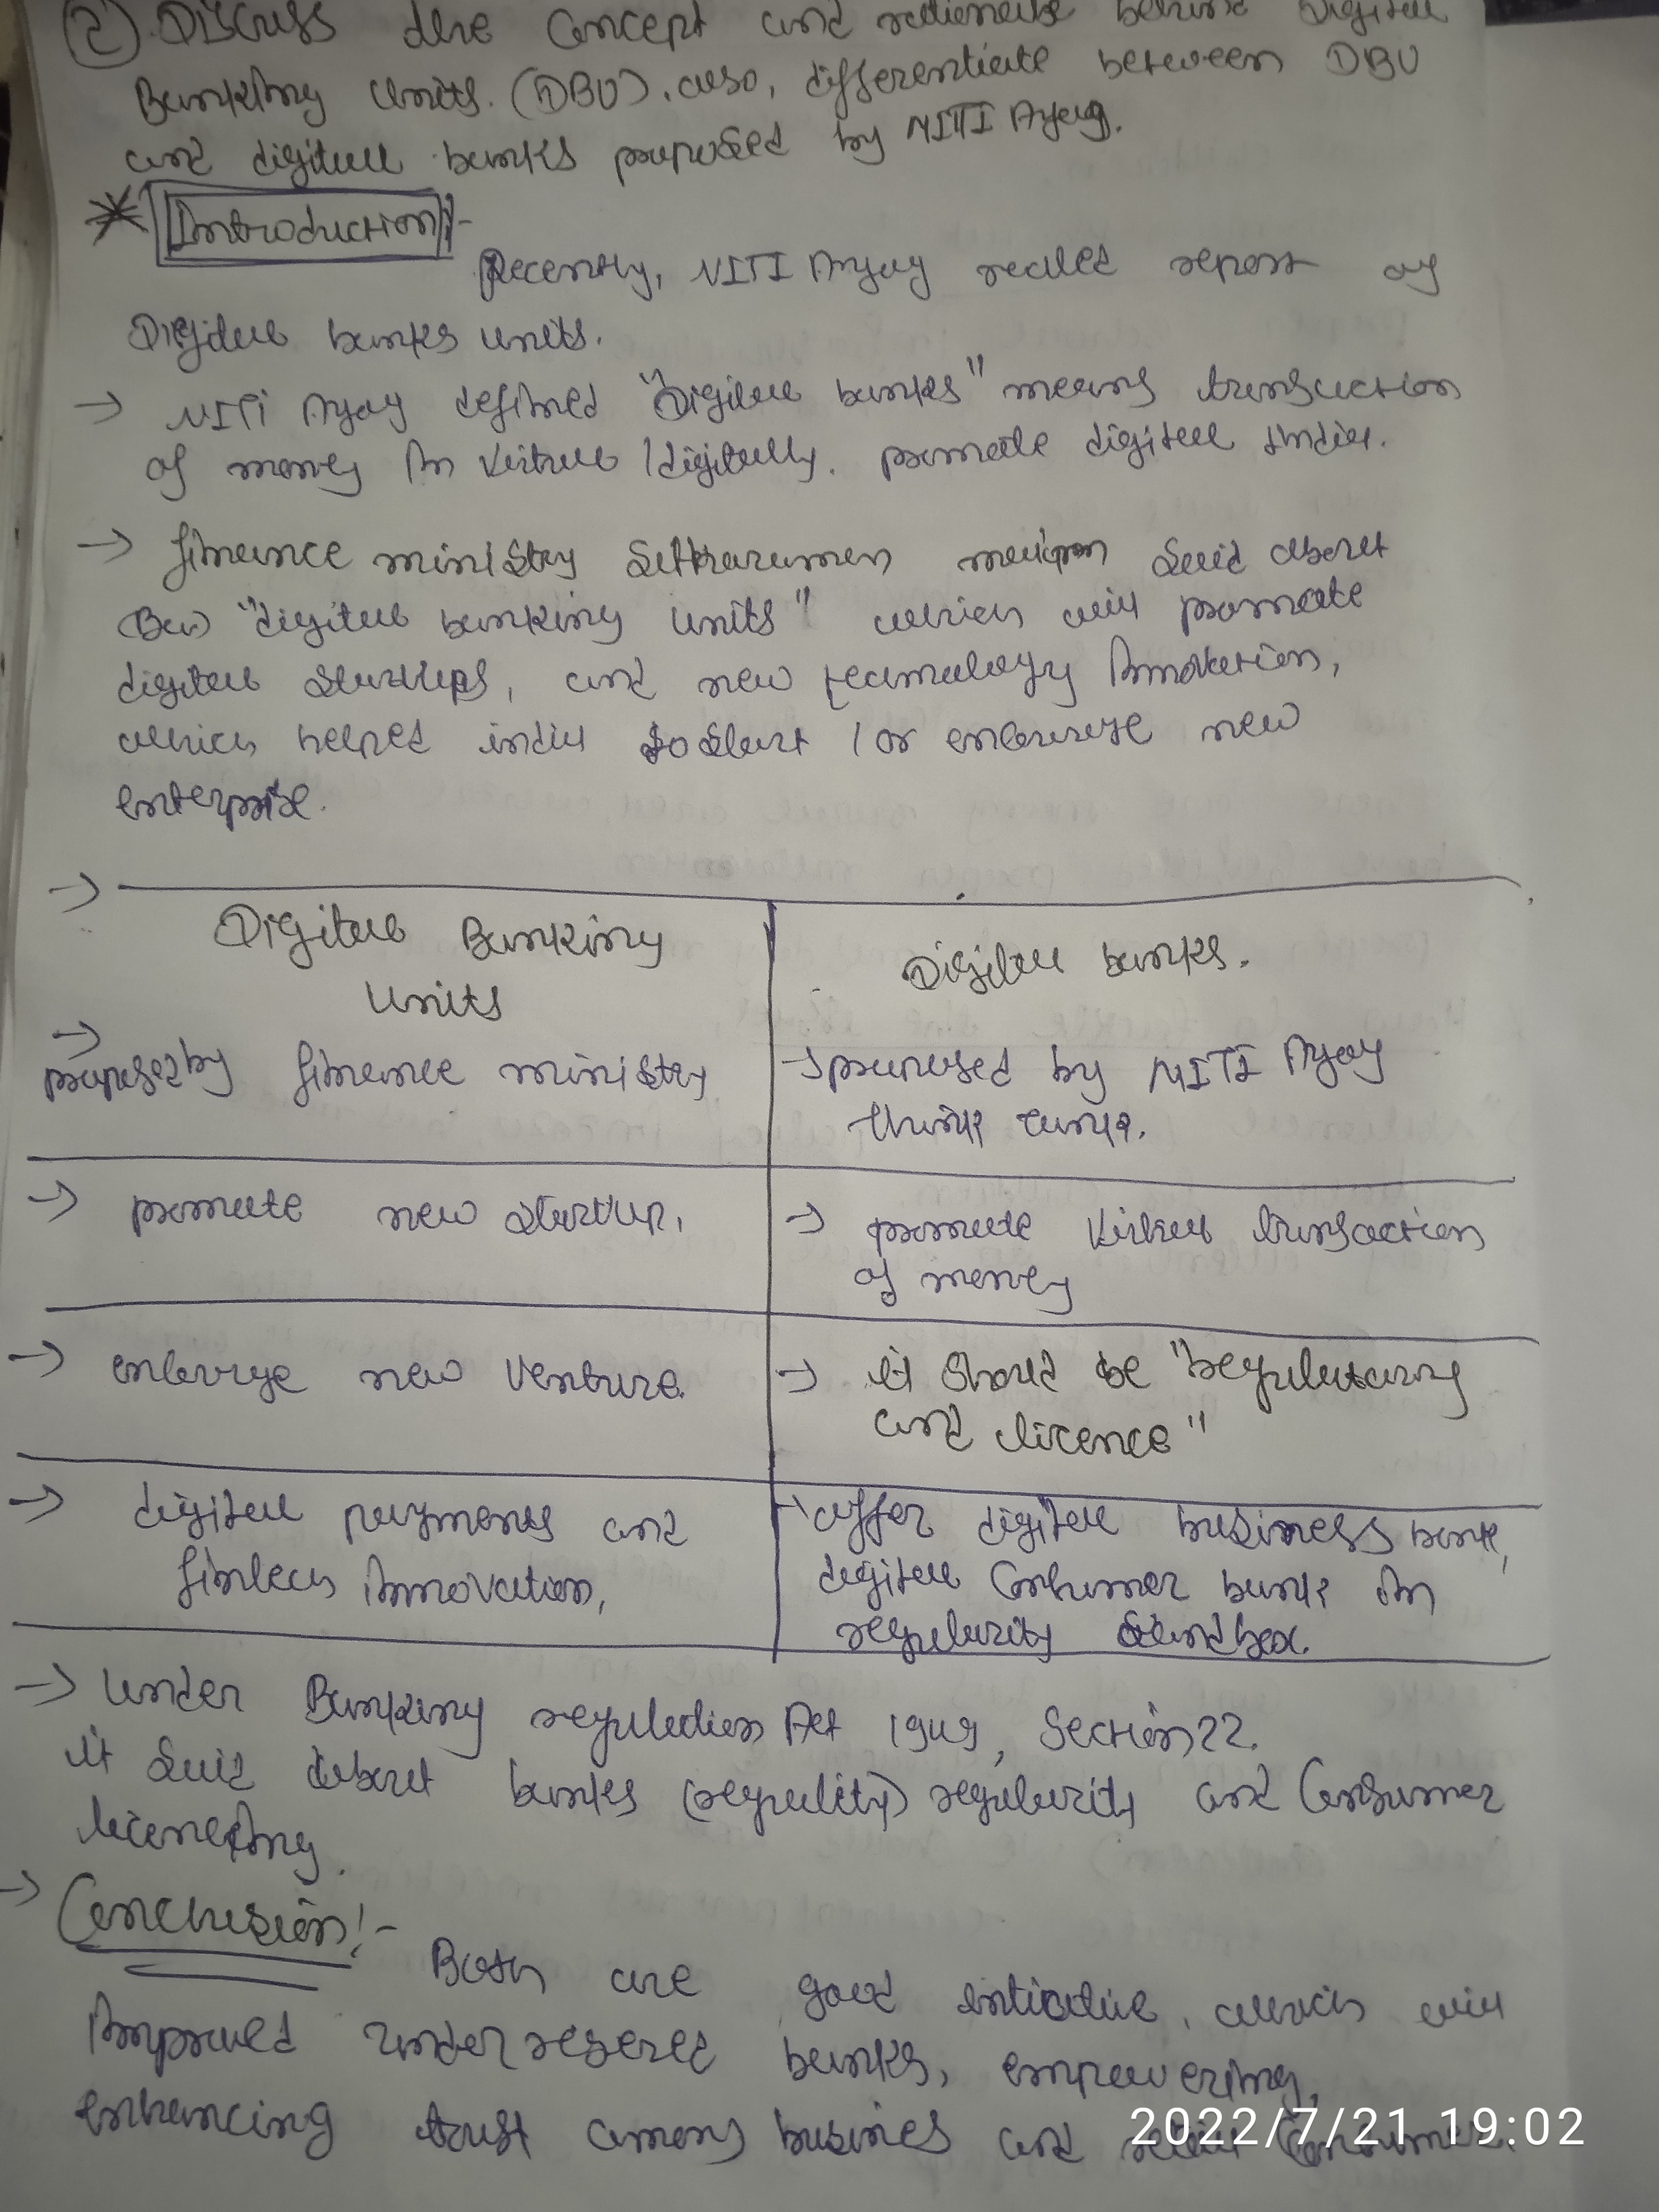 (2) Discuss the concept and rationale behind Digital
Banking Units. (DBU). also, differentiate between DBU
and digital banks proposed by NITI Ayog.
Introduction:-
Recently, NITI Ayog realled report of
Digital banks units.
→ NITI Ayog defined "Digital banks" means transaction
of money in virtual /digitally. promote digital india.
→ finance ministry Sitharaman said about
"digital banking units" which will promote
digital startups, and new technology innovation,
which helped india to start / or enlarge new
enterprise.
→
Digital Banking
Units
Digital banks.
→
proposed by finance ministry
→ proposed by NITI Ayog
think tank.
→ promote new startup.
→ promote virtual transaction
of money
→ enlarge new venture.
→ it should be "regulatary
and licence"
→ digital payments and
fintech innovation,
→ offer digital business bank,
digital Consumer bank in
regularity Sandbox.
→ Under Banking regulation Act 1949, Section 22.
it said about banks (regulity) regularity and Consumer
licensing.
→ Conclusion:-
Both are good initiative, which will
improved underresered banks, empowering,
enhancing trust among busines and retail Consumer.
2022/7/21 19:02